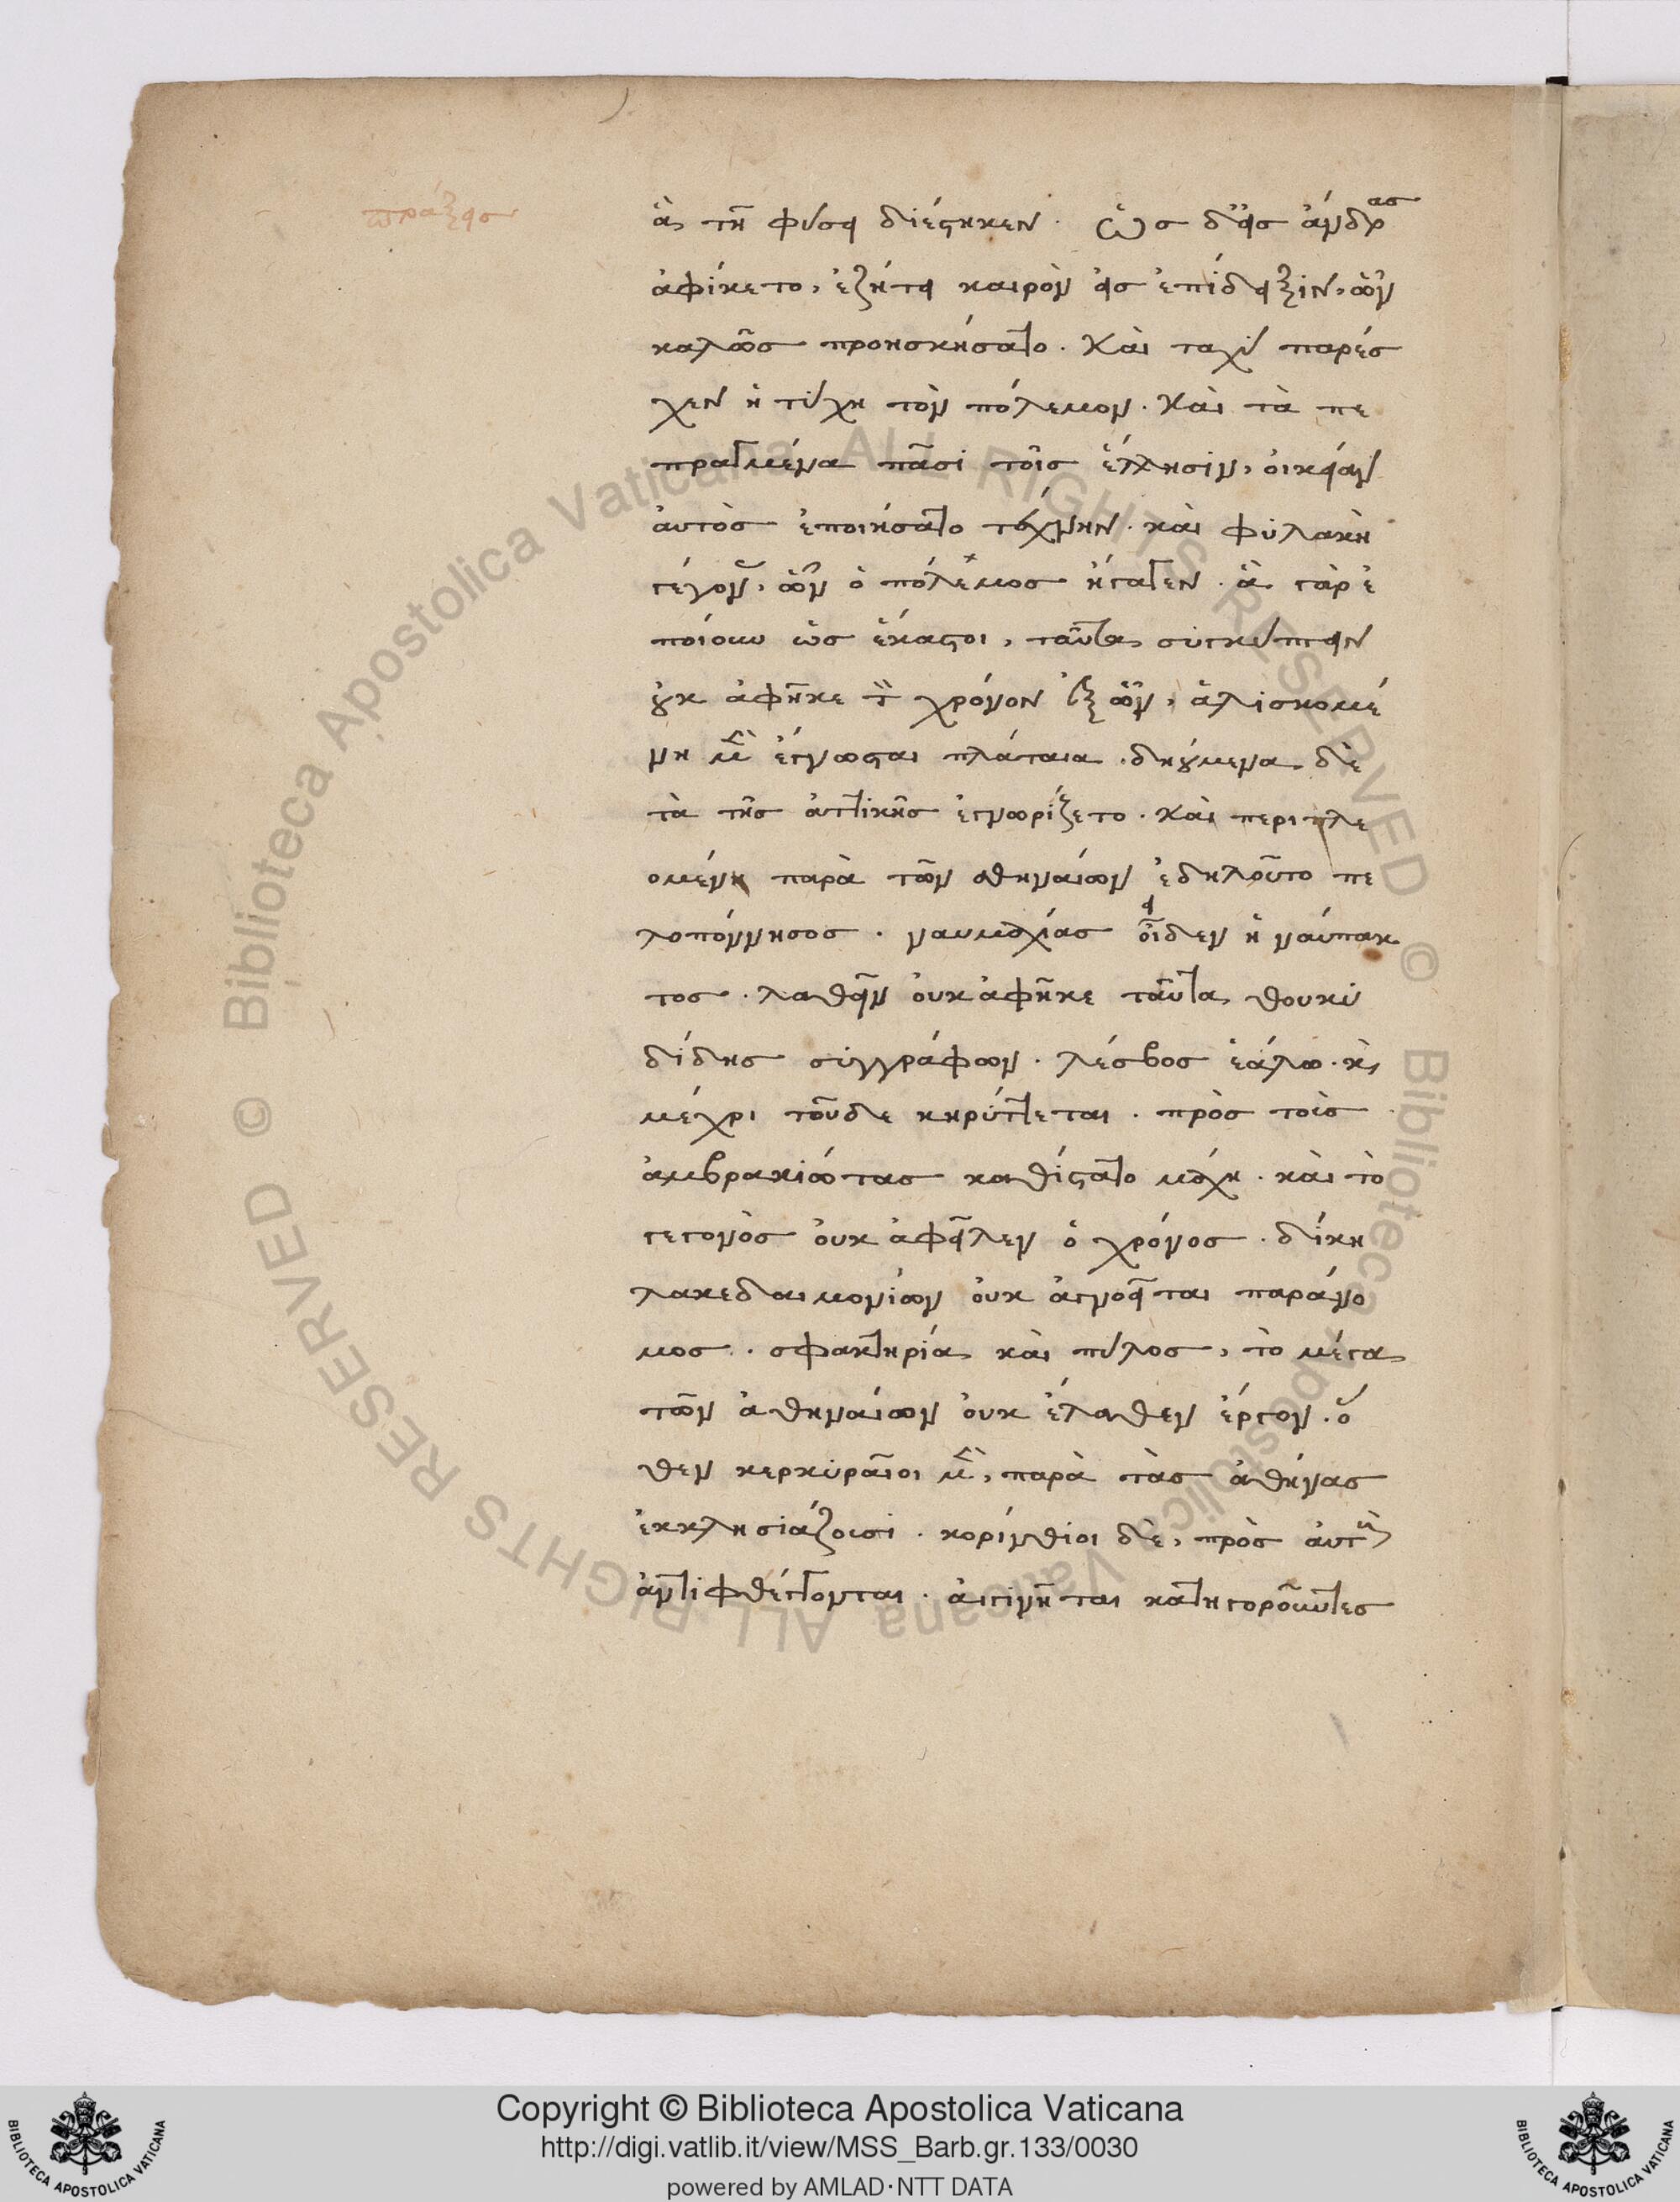 πράξεις
ἃ τῆ φύσει διέστηκεν. ὡς δ' εἰς ἄνδρας
ἀφίκετο, ἐζήτει καιρὸν εἰς ἐπίδειξιν, ὧν
καλῶς προησκήσατο. καὶ ταχὺ παρέσ
χεν ἡ τύχη τὸν πόλεμον. καὶ τὰ πε
πραγμένα πᾶσι τοῖς ἕλλησιν, οἰκείαν
αὐτὸς ἐποιήσατο τέχνην. καὶ φυλακὴ
γέγονεν, ὧν ὁ πόλεμος ἤγαγεν. ἃ γὰρ ἐ
ποίουν ὡς ἕκαστοι, ταῦτα συγκύπτειν
οὐκ ἀφῆκε τὸν χρόνον ἐξ ὧν, ἁλισκομέ
νη μὲν ἔγνωσται πλάταια. δηούμενα δὲ
τὰ τῆς ἀττικῆς ἐγνωρίζετο. καὶ περιπλε
ομένη παρὰ τῶν ἀθηναίων ἐδηλοῦτο πε
λοπόννησος. ναυμαχίας οἶδεν ἡ ναύπακ
τος. λαθεῖν οὐκ ἀφῆκε ταῦτα θουκυ
δίδης συγγράφων. λέσβος ἑάλω. καὶ
μέχρι τοῦδε κηρύττεται. πρὸς τοὶς
ἀμβρακιώτας καθίστατο μάχη. καὶ τὸ
γεγονὸς οὐκ ἀφεῖλεν ὁ χρόνος. δίκη
λακεδαιμονίων οὐκ ἀγνοεῖται παράνο
μος. σφακτηρία καὶ πύλος, τὸ μέγα
τῶν ἀθηναίων οὐκ ἔλαθεν ἔργον. ὅ
θεν κερκυραῖοι μὲν, παρὰ τὰς ἀθήνας
ἐκκλησιάζουσι. κορίνθιοι δὲ, πρὸς αὐτὰ
ἀντιφθέγγονται. αἰγινῆται κατηγοροῦντες
Copyright © Biblioteca Apostolica Vaticana
http://digi.vatlib.it/view/MSS_Barb.gr.133/0030
powered by AMLAD·NTT DATA